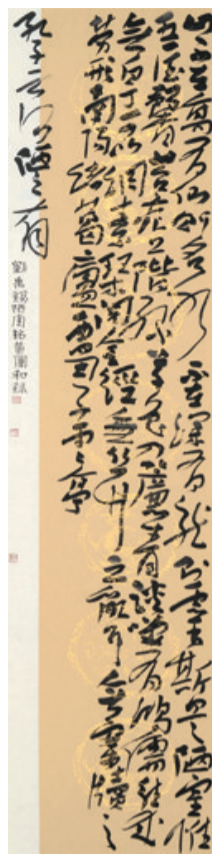 山不在高有仙則名水不在深有龍則靈斯是陋室惟
吾德馨苔痕上階綠草色入簾青談笑有鴻儒往來
無白丁可以調素琴閱金經無絲竹之亂耳無案牘之
勞形南陽諸葛廬西蜀子雲亭
孔子云何陋之有
劉禹錫陋室銘